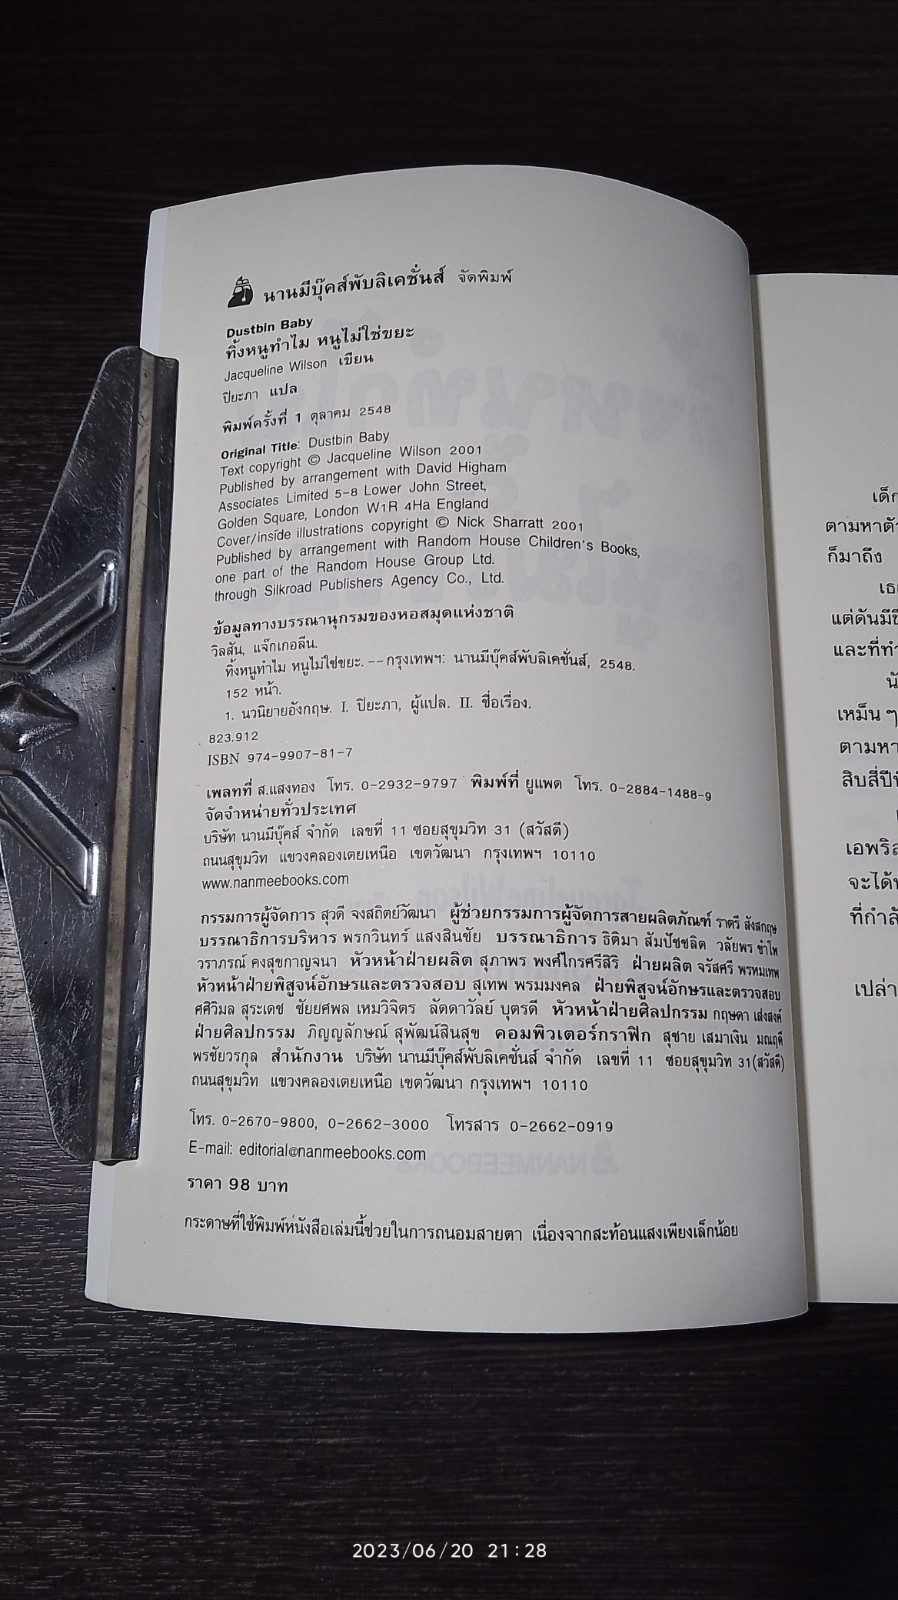 นานมีบุ๊คส์พับลิเคชั่นส์ จัดพิมพ์
Dustbin Baby
ทิ้งหนูทำไม หนูไม่ใช่ขยะ
Jacqueline Wilson เขียน
ปิยะภา แปล
พิมพ์ครั้งที่ 1 ตุลาคม 2548
Original Title: Dustbin Baby
Text copyright © Jacqueline Wilson 2001
Published by arrangement with David Higham
Associates Limited 5-8 Lower John Street,
Golden Square, London W1R 4Ha England
Cover/inside illustrations copyright © Nick Sharratt 2001
Published by arrangement with Random House Children's Books,
one part of the Random House Group Ltd.
through Silkroad Publishers Agency Co., Ltd.
ข้อมูลทางบรรณานุกรมของหอสมุดแห่งชาติ
วิลสัน, แจ๊กเกอลีน.
ทิ้งหนูทำไม หนูไม่ใช่ขยะ. -- กรุงเทพฯ: นานมีบุ๊คส์พับลิเคชั่นส์, 2548.
152 หน้า.
1. นวนิยายอังกฤษ. I. ปิยะภา, ผู้แปล. II. ชื่อเรื่อง.
823.912
ISBN 974-9907-81-7
เพลทที่ ส.แสงทอง โทร. 0-2932-9797 พิมพ์ที่ ยูแพด โทร. 0-2884-1488-9
จัดจำหน่ายทั่วประเทศ
บริษัท นานมีบุ๊คส์ จำกัด เลขที่ 11 ซอยสุขุมวิท 31 (สวัสดี)
ถนนสุขุมวิท แขวงคลองเตยเหนือ เขตวัฒนา กรุงเทพฯ 10110
www.nanmeebooks.com
กรรมการผู้จัดการ สุวดี จงสถิตย์วัฒนา ผู้ช่วยกรรมการผู้จัดการสายผลิตภัณฑ์ ราตรี สังสกฤษ
บรรณาธิการบริหาร พรกวินทร์ แสงสินชัย บรรณาธิการ ธิติมา สัมปัชชลิต วลัยพร ขำโพ
วราภรณ์ คงสุขกาญจนา หัวหน้าฝ่ายผลิต สุภาพร พงศ์ไกรศรีสิริ ฝ่ายผลิต จรัสศรี พรหมเทพ
หัวหน้าฝ่ายพิสูจน์อักษรและตรวจสอบ สุเทพ พรมมงคล ฝ่ายพิสูจน์อักษรและตรวจสอบ
ศศิวิมล สุระเดช ชัยยศพล เหมวิจิตร ลัดดาวัลย์ บุตรดี หัวหน้าฝ่ายศิลปกรรม กฤษดา เส่งสงค์
ฝ่ายศิลปกรรม ภิญญลักษณ์ สุพัฒน์สินสุข คอมพิวเตอร์กราฟิก สุชาย เสมาเงิน มณฤดี
พรชัยวรกุล สำนักงาน บริษัท นานมีบุ๊คส์พับลิเคชั่นส์ จำกัด เลขที่ 11 ซอยสุขุมวิท 31(สวัสดี)
ถนนสุขุมวิท แขวงคลองเตยเหนือ เขตวัฒนา กรุงเทพฯ 10110
โทร. 0-2670-9800, 0-2662-3000 โทรสาร 0-2662-0919
E-mail: editorial@nanmeebooks.com
ราคา 98 บาท
กระดาษที่ใช้พิมพ์หนังสือเล่มนี้ช่วยในการถนอมสายตา เนื่องจากสะท้อนแสงเพียงเล็กน้อย
ตามหาตัว
ก็มาถึง
และที่ทำ
เหม็น ๆ
ตามหา
จะได้
เปล่า
2023/06/20 21:28